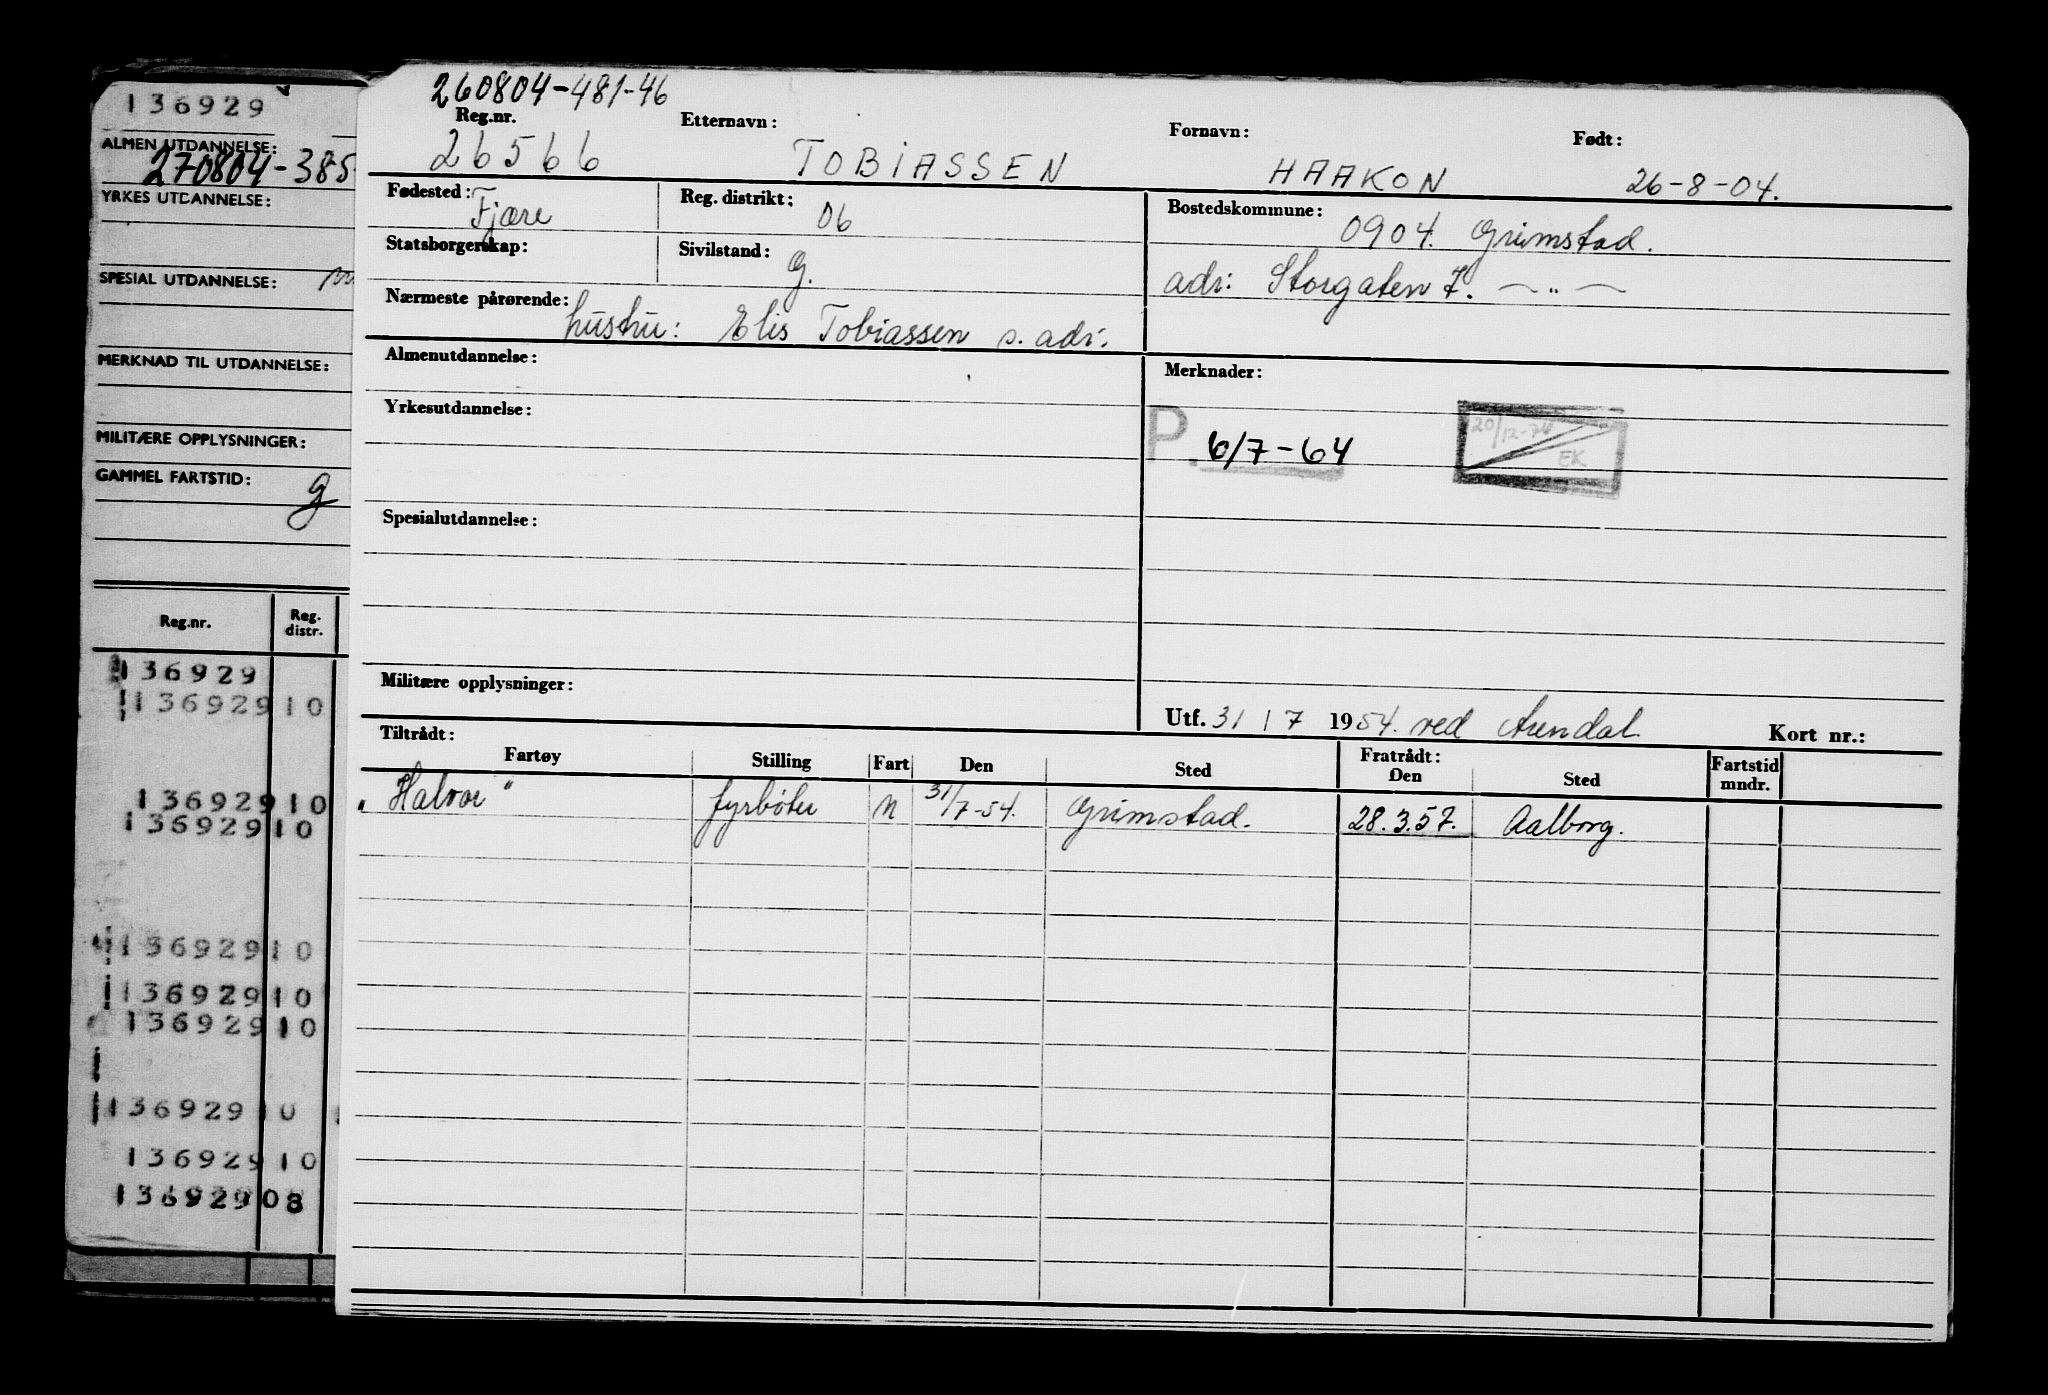 136929
ALMEN UTDANNELSE:
270804-385
YRKES UTDANNELSE:
SPESIAL UTDANNELSE:
MERKNAD TIL UTDANNELSE:
MILITÆRE OPPLYSNINGER:
GAMMEL FARTSTID: g
Reg.nr. Reg. distr.
136929
136929 10
136929 10
136929 10
136929 10
136929 10
136929 10
136929 10
136929 10
136929 08
260804-481-46
Reg.nr. Etternavn: Fornavn: Født:
26566 TOBIASSEN HAAKON 26-8-04.
Fødested: Fjære Reg. distrikt: 06 Bostedskommune: 0904. Grimstad.
Statsborgerskap: Sivilstand: g. adr: Storgaten 7. — „ —
Nærmeste pårørende: hustru: Elis Tobiassen s. adr.
Almenutdannelse: Merknader:
Yrkesutdannelse:
P. 6/7-64 20/12-74 EK
Spesialutdannelse:
Militære opplysninger:
Utf. 31 / 7 1954. ved Arendal. Kort nr.:
Tiltrådt: Fratrådt:
Fartøy Stilling Fart Den Sted Den Sted Fartstid mndr.
„Halvor" fyrbøter N 31/7-54. Grimstad. 28.3.57. Aalborg.